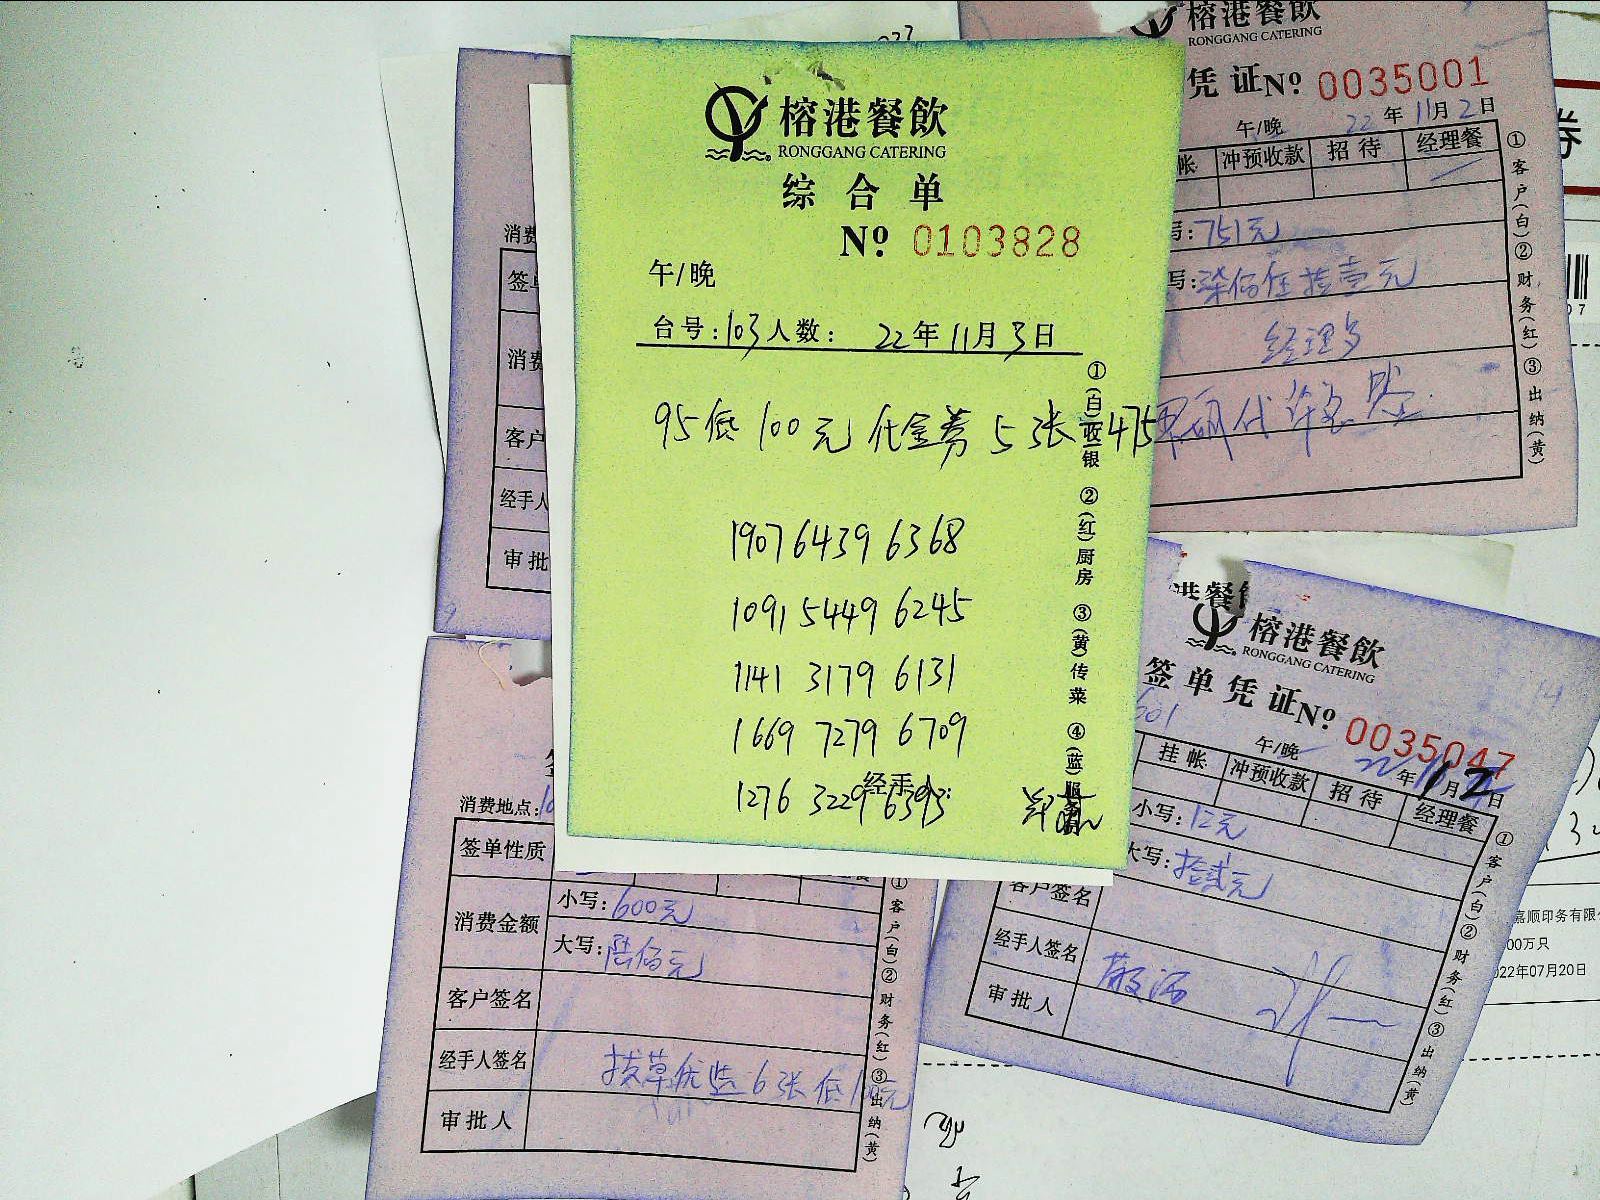 榕港餐飲
RONGGANG CATERING
综合单
№ 0103828
午/晚
台号:103人数: 22年11月3日
95低100元代金券5张 475
1907 6439 6368
1091 5449 6245
1141 3179 6131
1669 7279 6709
1276 3229 6393
经手人:
①(白)收银 ②(红)厨房 ③(黄)传菜 ④(蓝)服务员
榕港餐飲
RONGGANG CATERING
凭证№ 0035001
午/晚 22年11月2日
帐 冲预收款 招待 经理餐
写:751元
写:柒佰伍拾壹元
经理
代
①客户(白)②财务(红)③出纳(黄)
券
消费
签单
消费
客户
经手人
审批
9
港餐飲
榕港餐飲
RONGGANG CATERING
签单凭证№ 0035047
601
午/晚 22年 月12日
挂帐 冲预收款 招待 经理餐
小写:12元
大写:拾贰元
客户签名
经手人签名
审批人
①客户(白)②财务(红)③出纳(黄)
消费地点:10
签单性质
消费金额 小写:600元
大写:陆佰元
客户签名
经手人签名 拔草优选6张低100元
审批人
①客户(白)②财务(红)③出纳(黄)
嘉顺印务有限公
00万只
022年07月20日